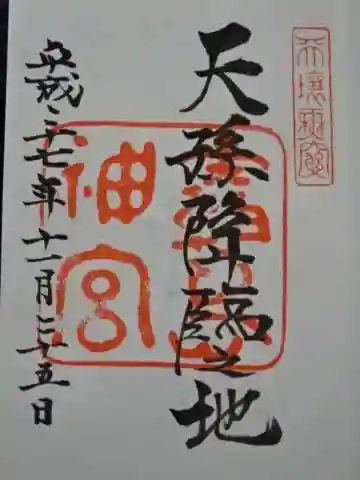 天壌無窮
天孫降臨之地
神宮
平成二十七年十一月二十五日